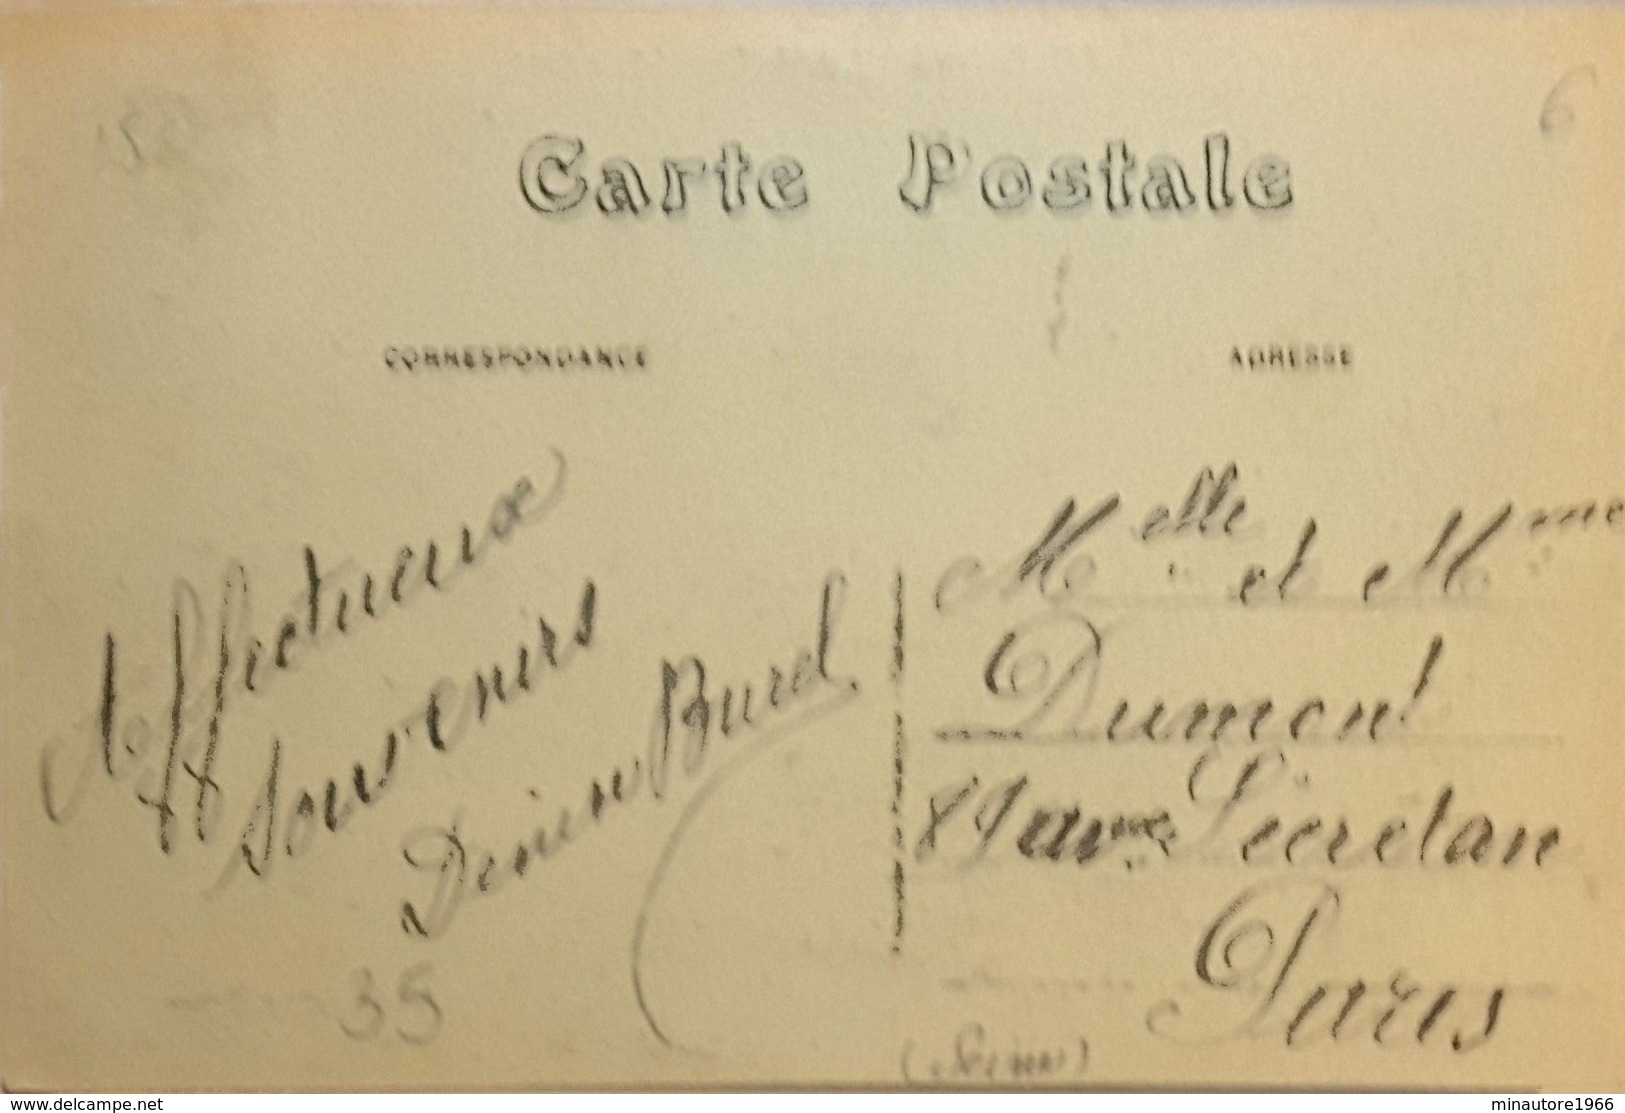 6
Carte Postale
CORRESPONDANCE
ADRESSE
Affectueux
Souvenirs
Burel
35
Melle et Mme
Dumont
89 ave Secretan
Paris
(Seine)
www.delcampe.net
minautore1966